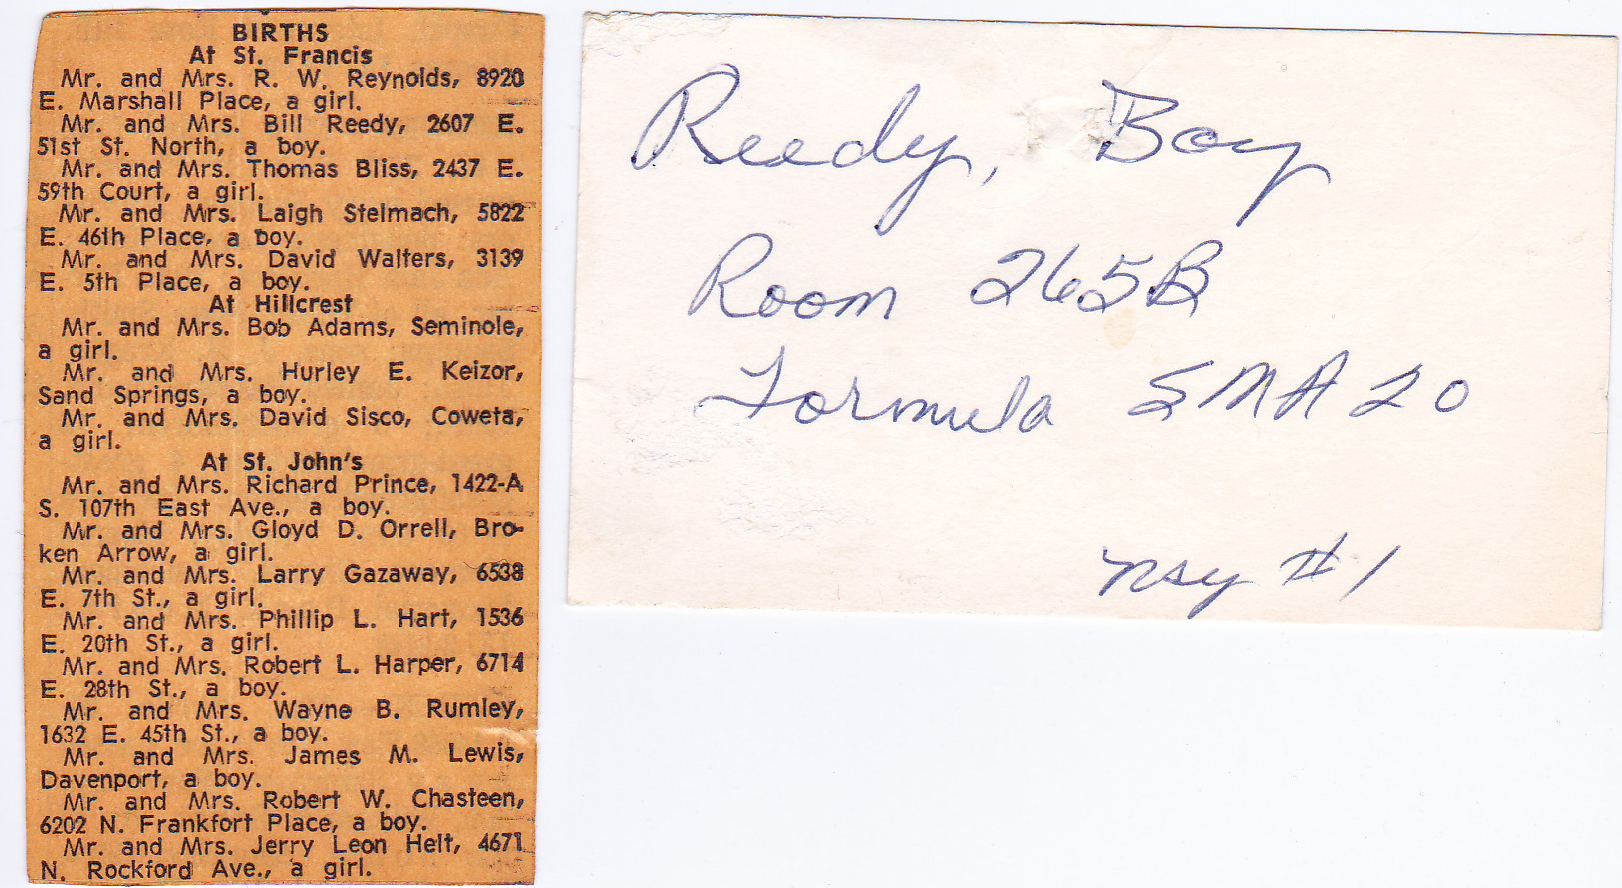 BIRTHS
At St. Francis
Mr. and Mrs. R. W. Reynolds, 8920
E. Marshall Place, a girl.
Mr. and Mrs. Bill Reedy, 2607 E.
51st St. North, a boy.
Mr. and Mrs. Thomas Bliss, 2437 E.
59th Court, a girl.
Mr. and Mrs. Laigh Stelmach, 5822
E. 46th Place, a boy.
Mr. and Mrs. David Walters, 3139
E. 5th Place, a boy.
At Hillcrest
Mr. and Mrs. Bob Adams, Seminole,
a girl.
Mr. and Mrs. Hurley E. Keizor,
Sand Springs, a boy.
Mr. and Mrs. David Sisco, Coweta,
a girl.
At St. John's
Mr. and Mrs. Richard Prince, 1422-A
S. 107th East Ave., a boy.
Mr. and Mrs. Gloyd D. Orrell, Bro-
ken Arrow, a girl.
Mr. and Mrs. Larry Gazaway, 6538
E. 7th St., a girl.
Mr. and Mrs. Phillip L. Hart, 1536
E. 20th St., a girl.
Mr. and Mrs. Robert L. Harper, 6714
E. 28th St., a boy.
Mr. and Mrs. Wayne B. Rumley,
1632 E. 45th St., a boy.
Mr. and Mrs. James M. Lewis,
Davenport, a boy.
Mr. and Mrs. Robert W. Chasteen,
6202 N. Frankfort Place, a boy.
Mr. and Mrs. Jerry Leon Helt, 4671
N. Rockford Ave., a girl.
Reedy, Boy
Room 265B
Formula SMA 20
nsy #1